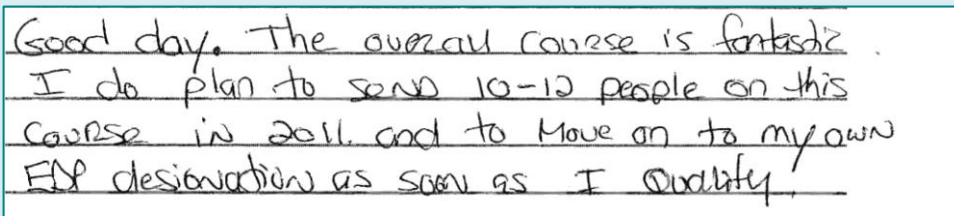 Good day. The overall course is fantastic.
I do plan to send 10-12 people on this
course in 2011. and to move on to my own
EDP designation as soon as I Qualify!